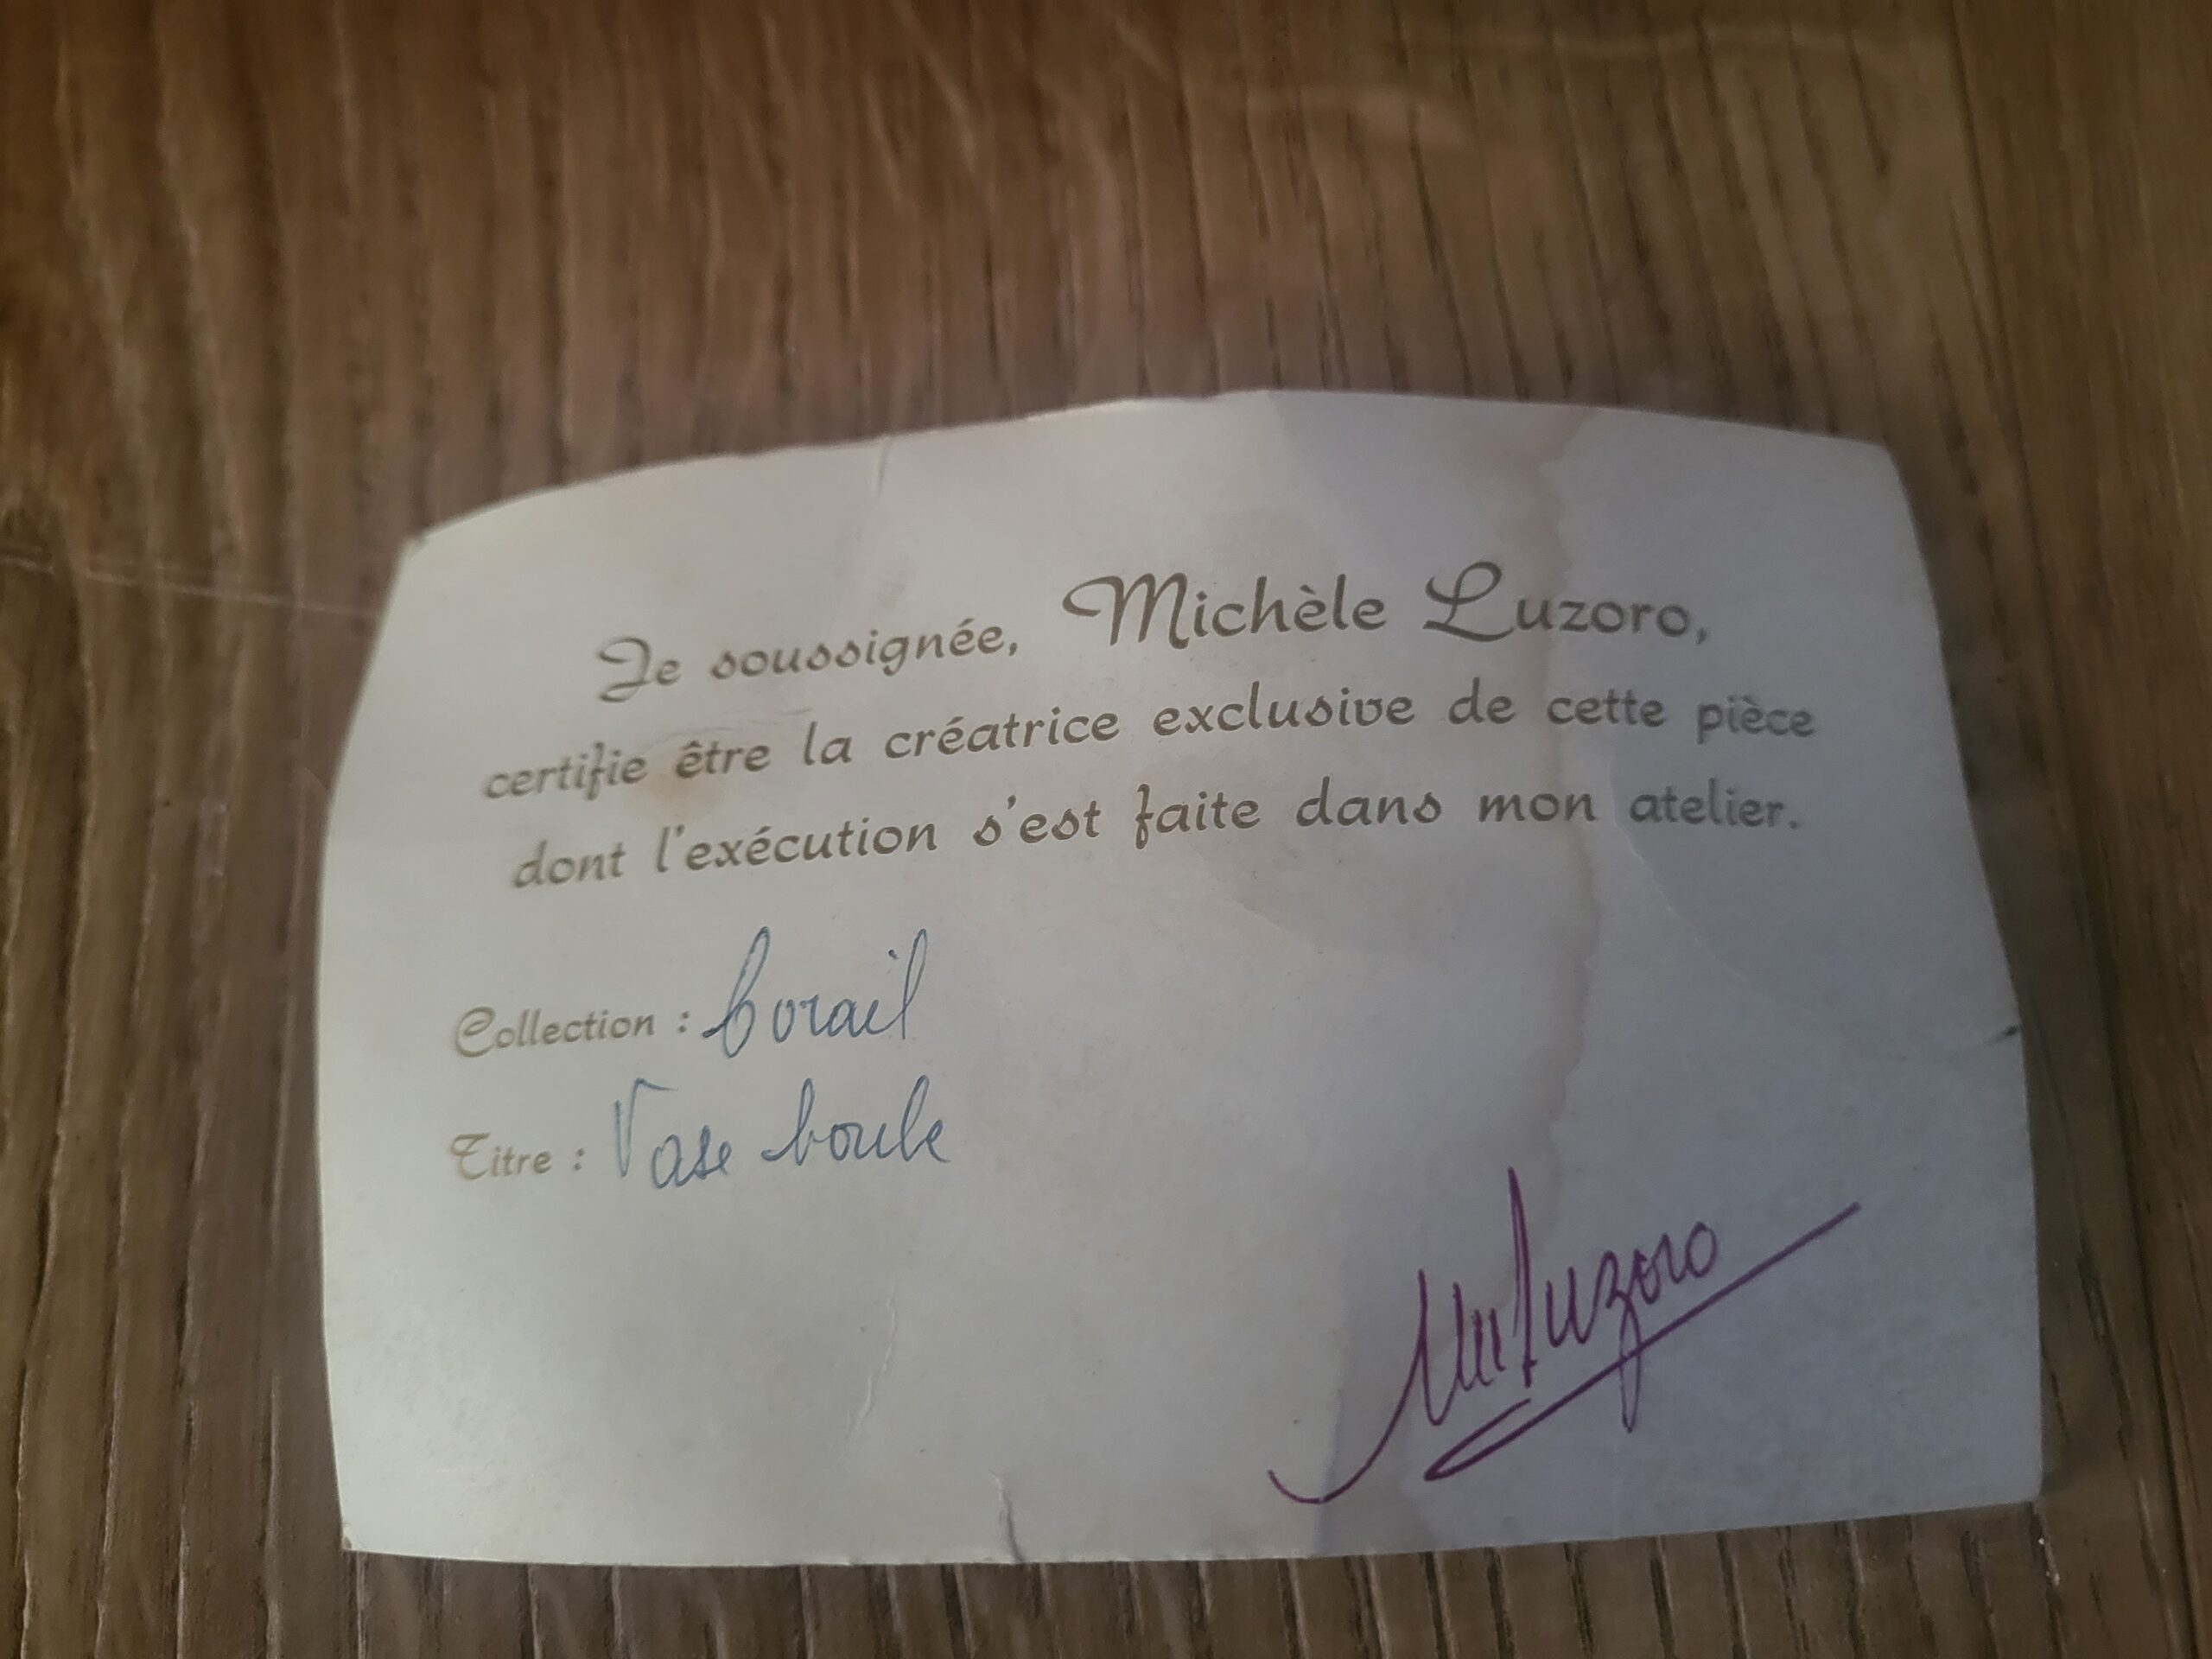 Je soussignée, Michèle Luzoro,
certifie être la créatrice exclusive de cette pièce
dont l'exécution s'est faite dans mon atelier.
Collection : Corail
Titre : Vase boule
M Luzoro